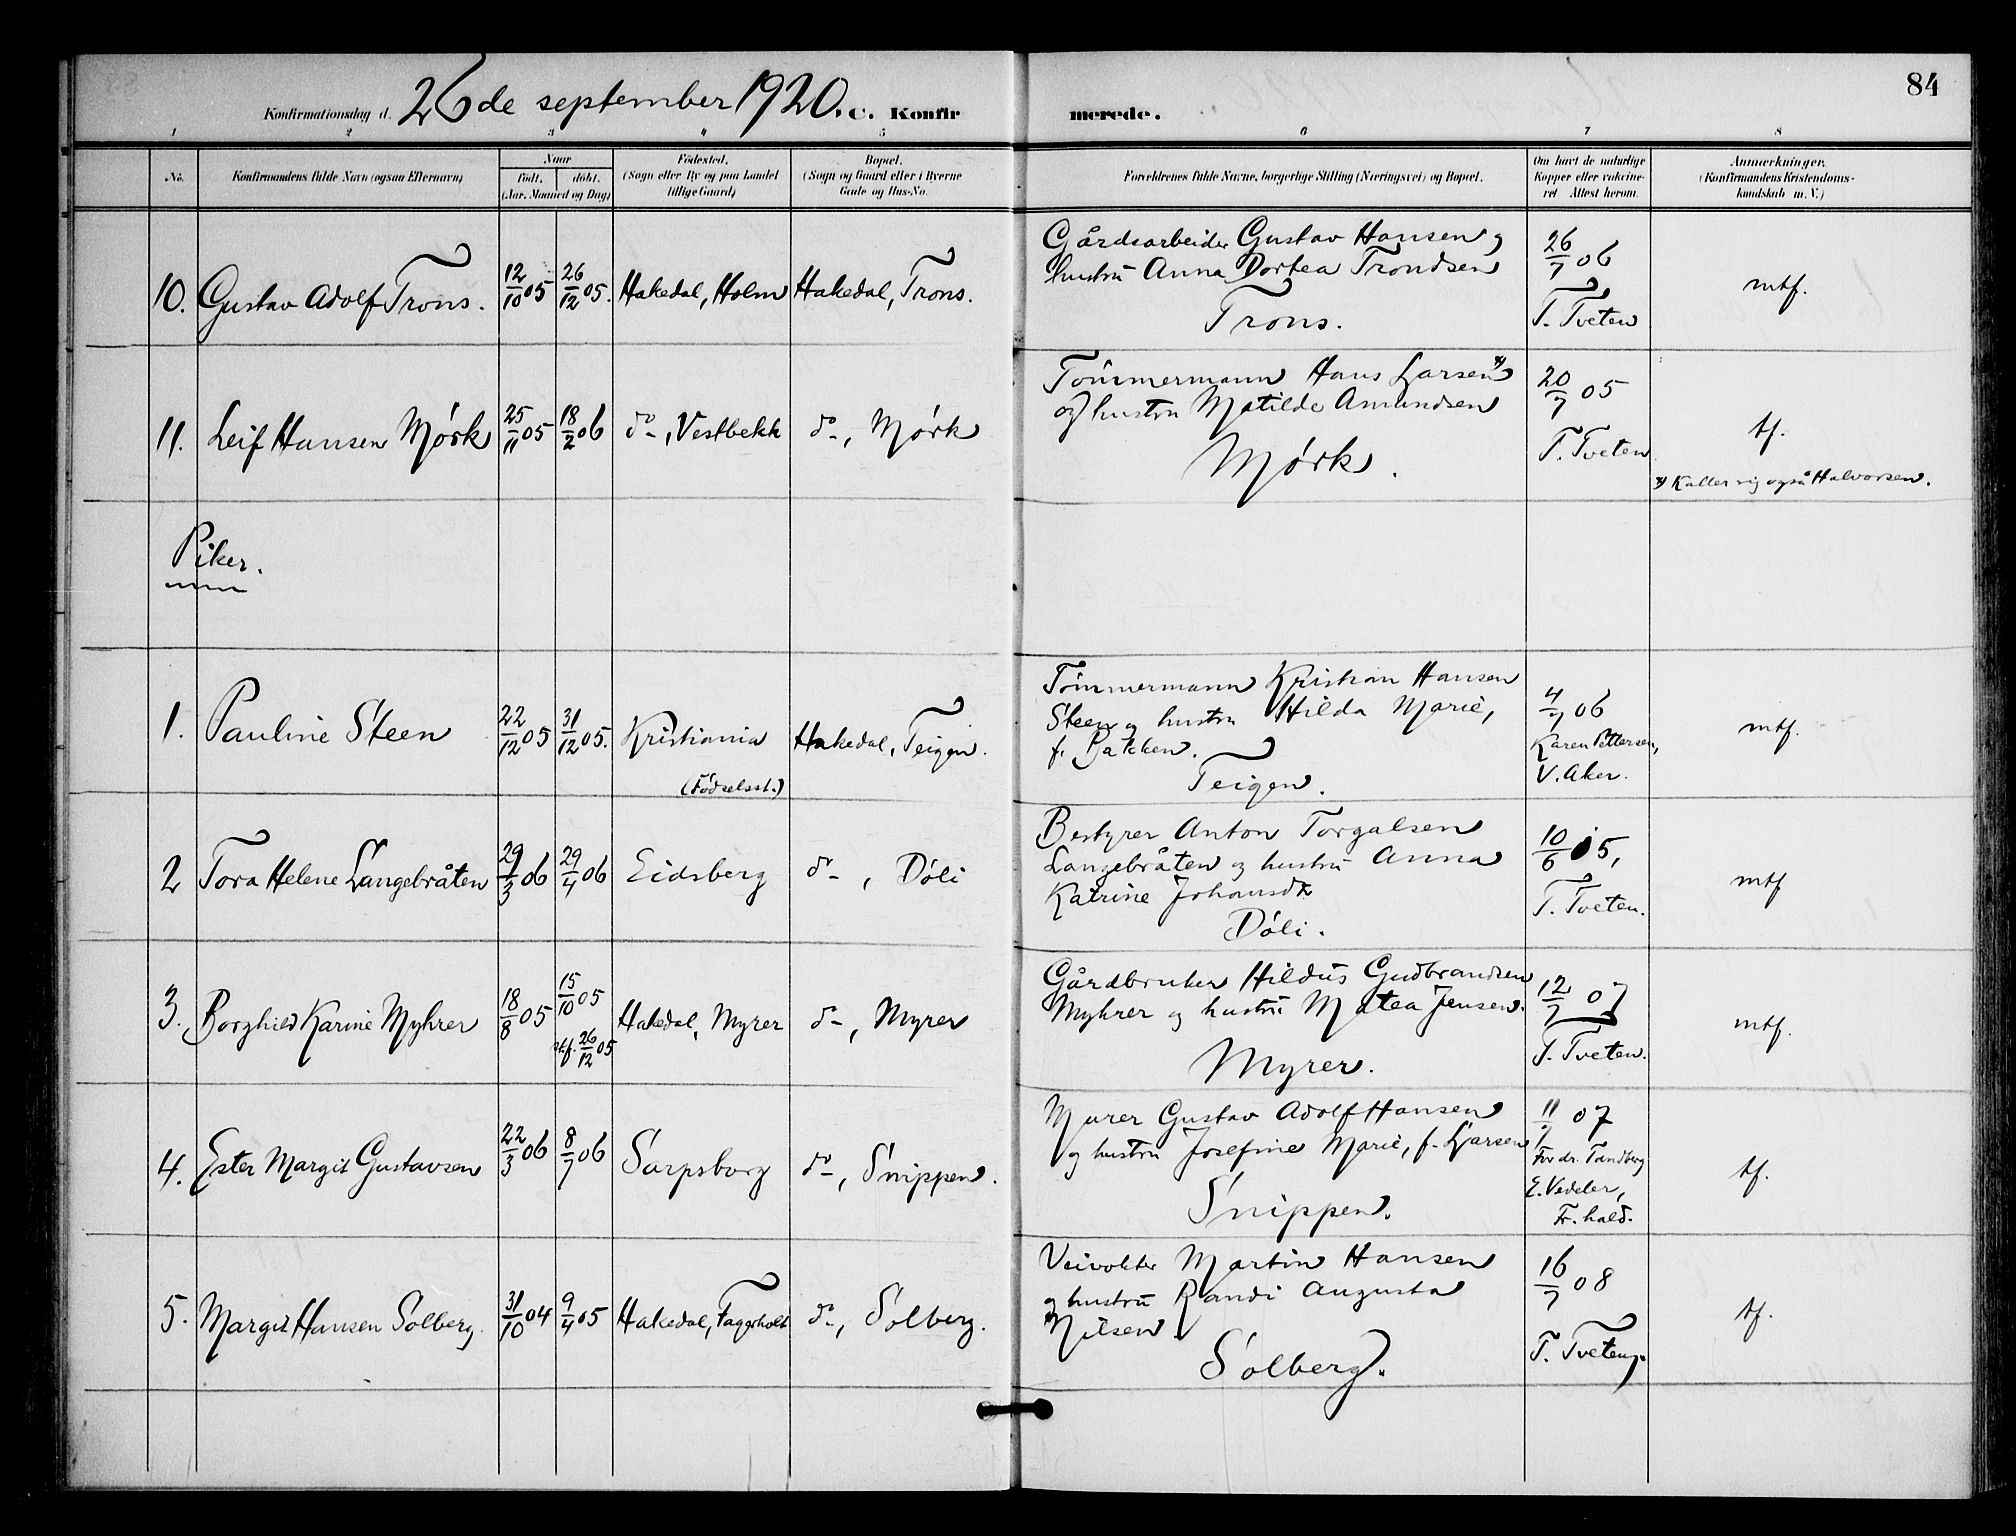 84
Konfirmationsdag d. 26de september 1920. C. Konfirmerede.
1 2 3 4 5 6 7 8
No. Konfirmandens fulde Navn (ogsaa Efternavn) Naar født. døbt. (Aar, Maaned og Dag) Fødested. (Sogn eller By og paa Landet tillige Gaard) Bopæl. (Sogn og Gaard eller i Byerne Gade og Hus-No. Forældrenes fulde Navne, borgerlige Stilling (Næringsvei) og Bopæl. Om havt de naturlige Kopper eller vakcineret Attest herom. Anmærkninger. (Konfirmandens Kristendomskundskab m. V.)
10. Gustav Adolf Trons. 12/10 05 26/12 05. Hakedal, Holm Hakedal, Trons.
Gårdsarbeider Gustav Hansen og
hustru Anna Dortea Trondsen
Trons.
26/7 06
T. Tveten
mtf.
11. Leif Hansen Mørk 25/11 05 18/2 06 do, Vestbekk do, Mørk
Tömmermann Hans Larsen x)
og hustru Matilde Amundsen
Mørk.
20/7 05
T. Tveten
tf.
x) Kaller sig også Halvorsen.
Piker.
1. Pauline Steen 22/12 05 31/12 05. Kristiania (Födselsst.) Hakedal, Teigen.
Tömmermann Kristian Hansen
Steen og hustru Hilda Marie,
f. Bakken.
Teigen.
4/7 06
Karen Pettersen,
V. Aker.
mtf.
2 Tora Helene Langebråten 29/3 06 29/4 06 Eidsberg do, Döli
Bestyrer Anton Torgalsen
Langebråten og hustru Anna
Katrine Johansdtr
Döli.
10/6 05,
T. Tveten.
mtf
3. Borghild Karine Myhrer 18/8 05 15/10 05 st.f. 26/12 05 Hakedal, Myrer do, Myrer
Gårdbruker Hildus Gudbrandsen
Myhrer og hustru Matea Jensen.
Myrer.
12/7 07
T. Tveten.
mtf.
4. Ester Margit Gustavsen 22/3 06 8/7 06 Sarpsborg do, Snippen.
Murer Gustav Adolf Hansen
og hustru Josefine Marie, f. Larsen
Snippen.
11/9 07
For dr. Tandberg
E. Vedeler,
Fr. hald.
tf.
5. Margit Hansen Solberg 31/10 04 9/4 05 Hakedal, Fagerholt do, Solberg.
Veivokter Martin Hansen
og hustru Randi Augusta
Nilsen
Solberg.
16/7 08
T. Tveten.
tf.